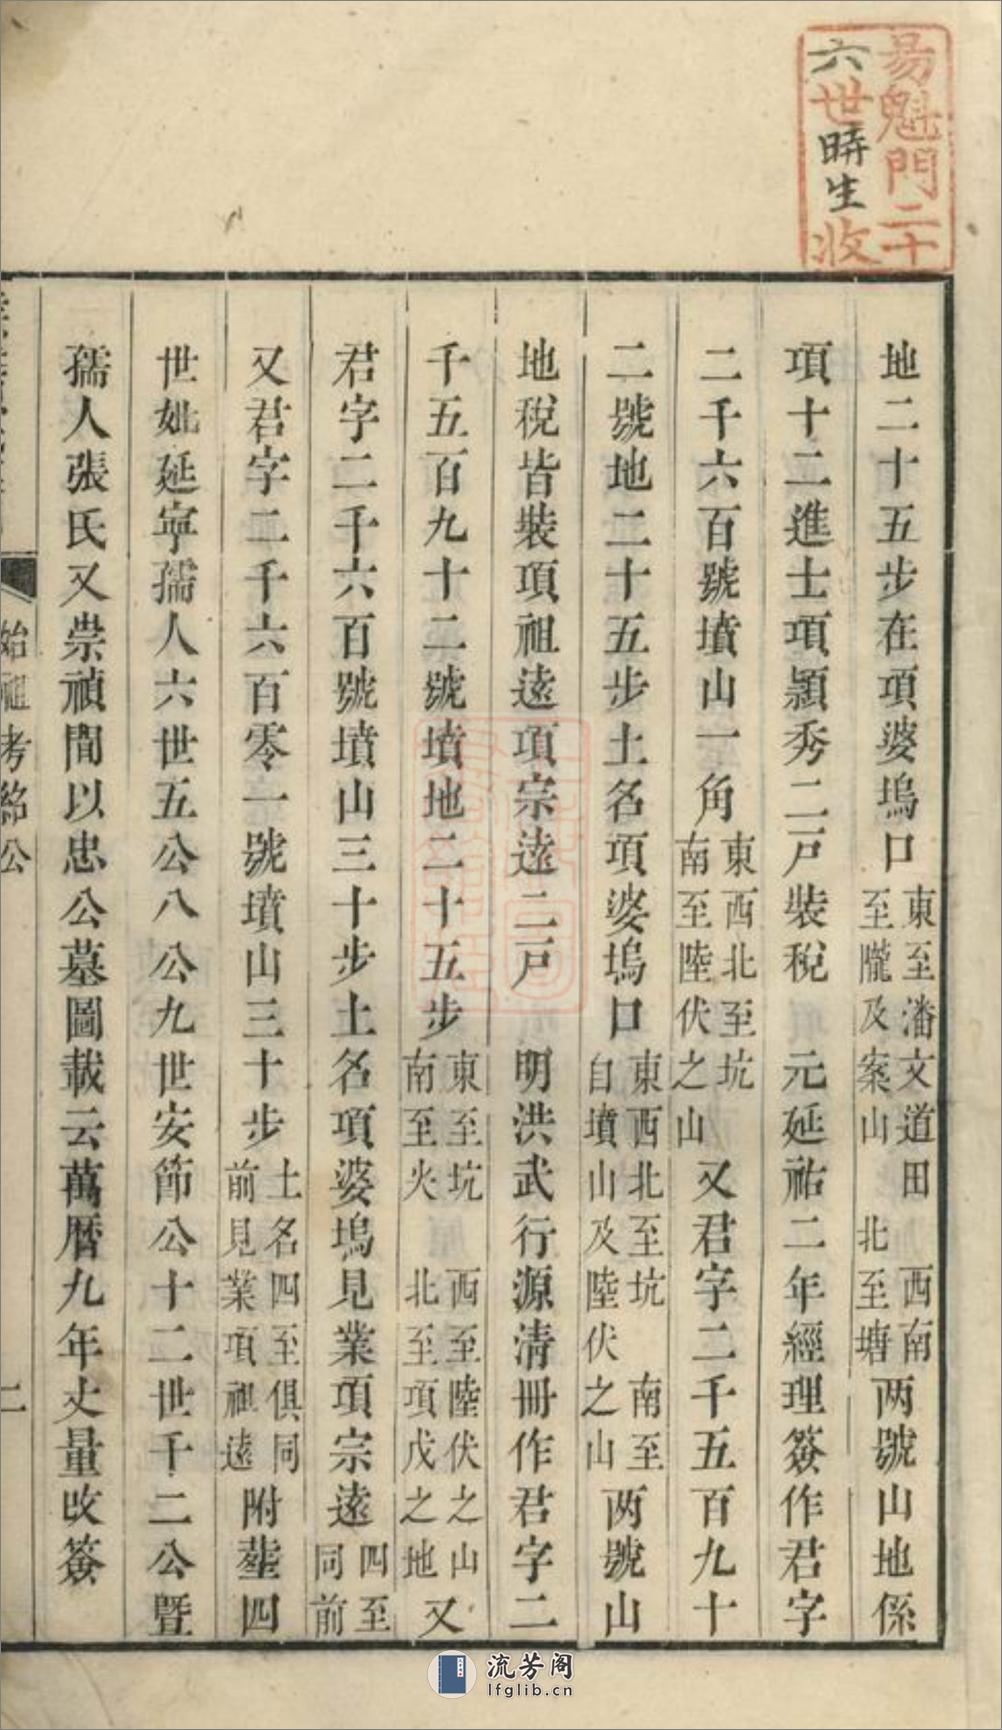 易魁門二十
六世時生收
地二十五步在項婆塢口東至潘文道田西南至隴及案山北至塘两號山地係
項十二進士項顯秀二戸裝稅 元延祐二年經理簽作君字
二千六百號墳山一角東西北至坑南至陸伏之山又君字二千五百九十
二號地二十五步土名項婆塢口東西北至坑南至自墳山及陸伏之山两號山
地稅皆裝項祖遠項宗遠二戸 明洪武行源清冊作君字二
千五百九十二號墳地二十五步東至坑西至陸伏之山南至火北至項戊之地又
君字二千六百號墳山三十步土名項婆塢見業項宗遠四至同前
又君字二千六百零一號墳山三十步土名四至俱同前見業項祖遠附塟四
世妣延寧孺人六世五公八公九世安節公十二世千二公暨
孺人張氏又崇禎間以忠公墓圖載云萬曆九年丈量改簽
始祖考紹公
二
流芳阁
lfglib.cn